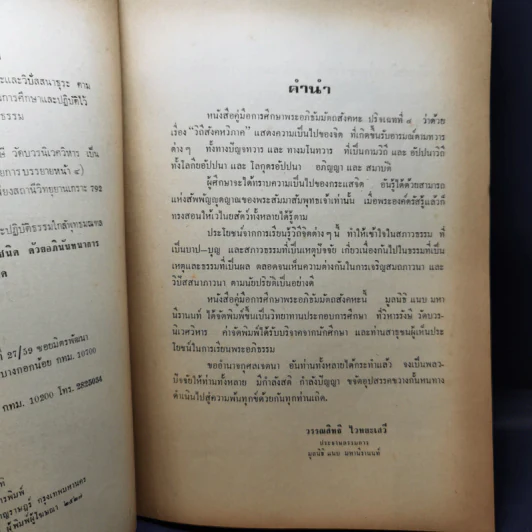 ะและวิปัสสนาธุระ ตาม
การศึกษาและปฏิบัติไว้
ธรรม
วัดบวรนิเวศวิหาร เป็น
การ บรรยายหน้า ๔)
ยงสถานีวิทยุยานเกราะ 792
ปฏิบัติธรรมใกล้พุทธมณฑล
ด้วยอภินันทนาการ
ที่ 27/59 ซอยมิตรพัฒนา
บางกอกน้อย กทม. 10700
กทม. 10200 โทร. 2825054
การพิมพ์
ราษฎร์ กรุงเทพมหานคร
ผู้พิมพ์ผู้โฆษณา ๒๕๒๗
คำนำ
หนังสือคู่มือการศึกษาพระอภิธัมมัตถสังคหะ ปริจเฉทที่ ๔ ว่าด้วย
เรื่อง "วิถีสังคหวิภาค" แสดงความเป็นไปของจิต ที่เกิดขึ้นรับอารมณ์ตามทวาร
ต่าง ๆ ทั้งทางปัญจทวาร และ ทางมโนทวาร ที่เป็นกามวิถี และ อัปปนาวิถี
ทั้งโลกียอัปปนา และ โลกุตรอัปปนา อภิญญา และ สมาบัติ
ผู้ศึกษาจะได้ทราบความเป็นไปของกระแสจิต อันรู้ได้ด้วยสามารถ
แห่งสัพพัญญุตญาณของพระสัมมาสัมพุทธเจ้าเท่านั้น เมื่อพระองค์ตรัสรู้แล้วก็
ทรงสอนให้เวไนยสัตว์ทั้งหลายได้รู้ตาม
ประโยชน์จากการเรียนรู้วิถีจิตต่าง ๆ นี้ ทำให้เข้าใจในสภาวธรรม ที่
เป็นบาป–บุญ และสภาวธรรมที่เป็นเหตุปัจจัย เกี่ยวเนื่องกันไปในธรรมที่เป็น
เหตุและธรรมที่เป็นผล ตลอดจนเห็นความต่างกันในการเจริญสมถภาวนา และ
วิปัสสนาภาวนา ตามนัยปริยัติเป็นอย่างดี
หนังสือคู่มือการศึกษาพระอภิธัมมัตถสังคหะนี้ มูลนิธิ แนบ มหา
นีรานนท์ ได้จัดพิมพ์ขึ้นเป็นวิทยาทานประกอบการศึกษา ที่วิหารรังษี วัดบวร-
นิเวศวิหาร ค่าจัดพิมพ์ได้รับบริจาคจากนักศึกษา และท่านสาธุชนผู้เห็นประ
โยชน์ในการเรียนพระอภิธรรม
ขออำนาจกุศลเจตนา อันท่านทั้งหลายได้กระทำแล้ว จงเป็นพลว-
ปัจจัยให้ท่านทั้งหลาย มีกำลังสติ กำลังปัญญา ขจัดอุปสรรคขวางกั้นหนทาง
ดำเนินไปสู่ความพ้นทุกข์ด้วยกันทุกท่านเถิด.
วรรณสิทธิ ไวทยะเสวี
ประธานกรรมการ
มูลนิธิ แนบ มหานีรานนท์